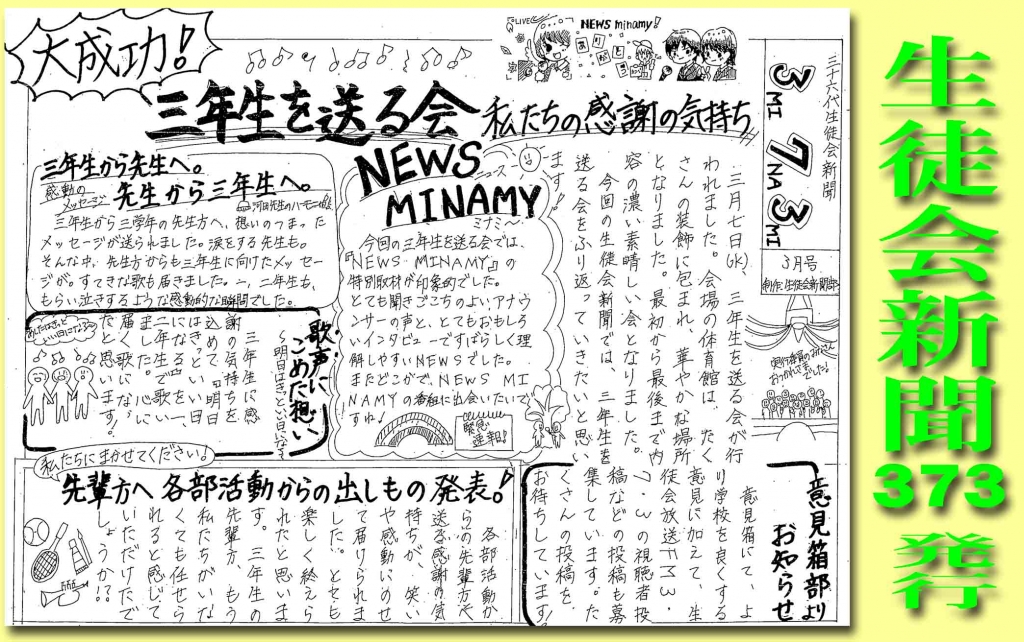 大成功!
三年生を送る会
私たちの感謝の気持ち
LIVE
NEWS minamy!
ありがとう
三十六代生徒会新聞
3 7 3
MI NA MI
3月号
制作:生徒会新聞部
実行委員のみなさん
おつかれさまでした!
三月七日(水)、三年生を送る会が行
われました。会場の体育館は、たく
さんの装飾に包まれ、華やかな場所
となりました。最初から最後まで内
容の濃い素晴しい会となりました。
今回の生徒会新聞では、三年生を
送る会をふり返っていきたいと思い
ます!
NEWS
ニュース
MINAMY
ミナミ~
今回の三年生を送る会では、
『NEWS MINAMY』の
特別取材が印象的でした。
とても聞きごこちのよいアナウ
ンサーの声と、とてもおもしろ
いインタビューですばらしく理
解しやすいNEWSでした。
またどこかで、NEWS MI
NAMYの番組に出会いたいで
すね。
緊急
速報!
三年生から先生へ。
感動の
メッセージ
先生から三年生へ。
三年生から三学年の先生方へ、想いのつまった
メッセージが送られました。涙をする先生も。
そんな中、先生方からも三年生に向けたメッセー
ジが。すてきな歌も届きました。一、二年生も、
もらい泣きするような感動的な瞬間でした。
歌声に
こめた想い
三年生に感
謝の気持ちを
込めて、「明日
はきっといい日
になる」を一、
二年生で歌い
ました。心に
届く歌になっ
たと思います。
私たちにまかせてください!
先輩方へ 各部活動からの出しもの発表!
各部活動か
らの先輩方へ
送る感謝の気
持ちが、笑い
や感動にのせ
て届けられま
した。とても
楽しく終えら
れたと思いま
す。三年生の
先輩方、もう
私たちがいな
くても任せら
れると感じて
いただけたで
しょうか!?
意見箱部より
お知らせ
意見箱にて、よ
り学校を良くする
意見に加えて、生
徒会放送TMM、
7・Wの視聴者投
稿などの投稿も募
集しています。た
くさんの投稿を、
お待ちしています!
生徒会新聞
373
発行